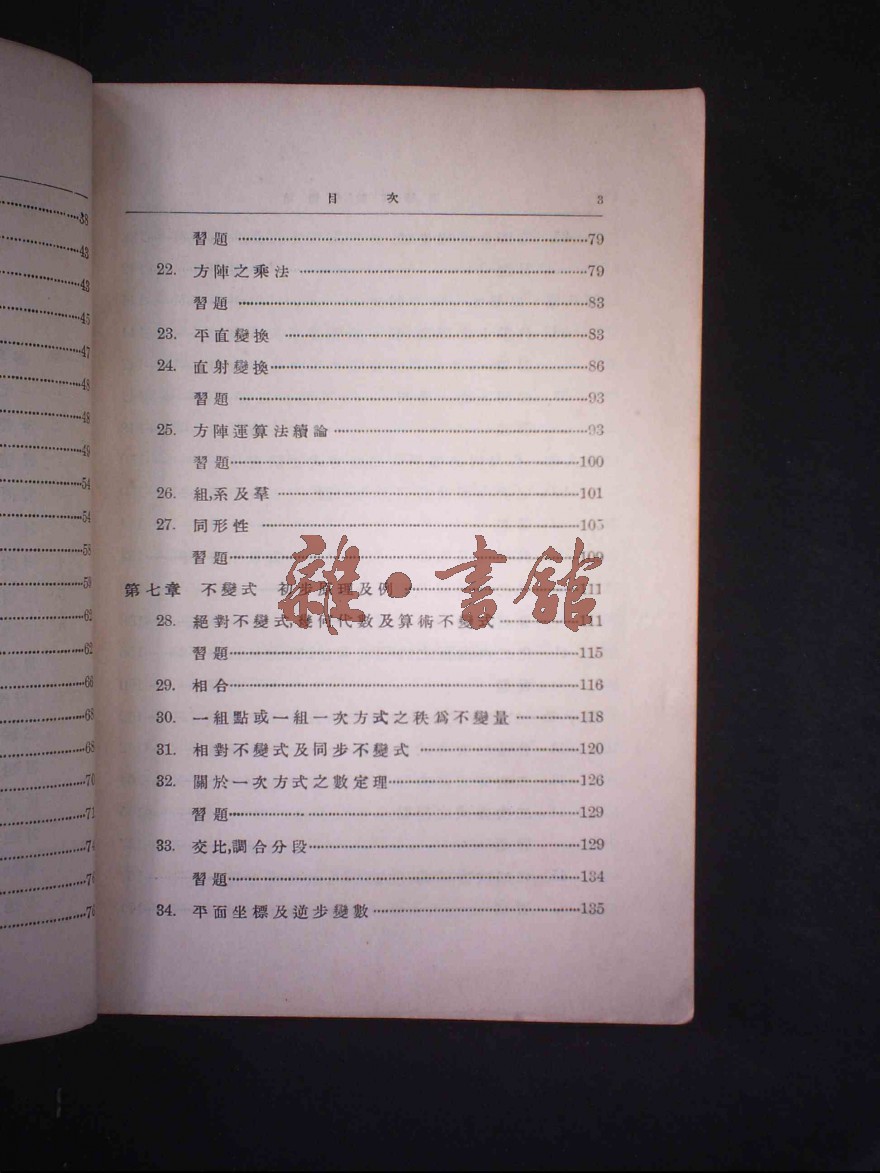 38
43
43
45
47
48
48
49
54
54
58
59
62
62
66
68
68
70
71
74
76
76
目 次 3
習題 79
22. 方陣之乘法 79
習題 83
23. 平直變換 83
24. 直射變換 86
習題 93
25. 方陣運算法續論 93
習題 100
26. 組,系及羣 101
27. 同形性 105
習題 109
第七章 不變式 初步原理及例 111
28. 絕對不變式,幾何代數及算術不變式 111
習題 115
29. 相合 116
30. 一組點或一組一次方式之秩爲不變量 118
31. 相對不變式及同步不變式 120
32. 關於一次方式之數定理 126
習題 129
33. 交比,調合分段 129
習題 134
34. 平面坐標及逆步變數 135
雜·書館